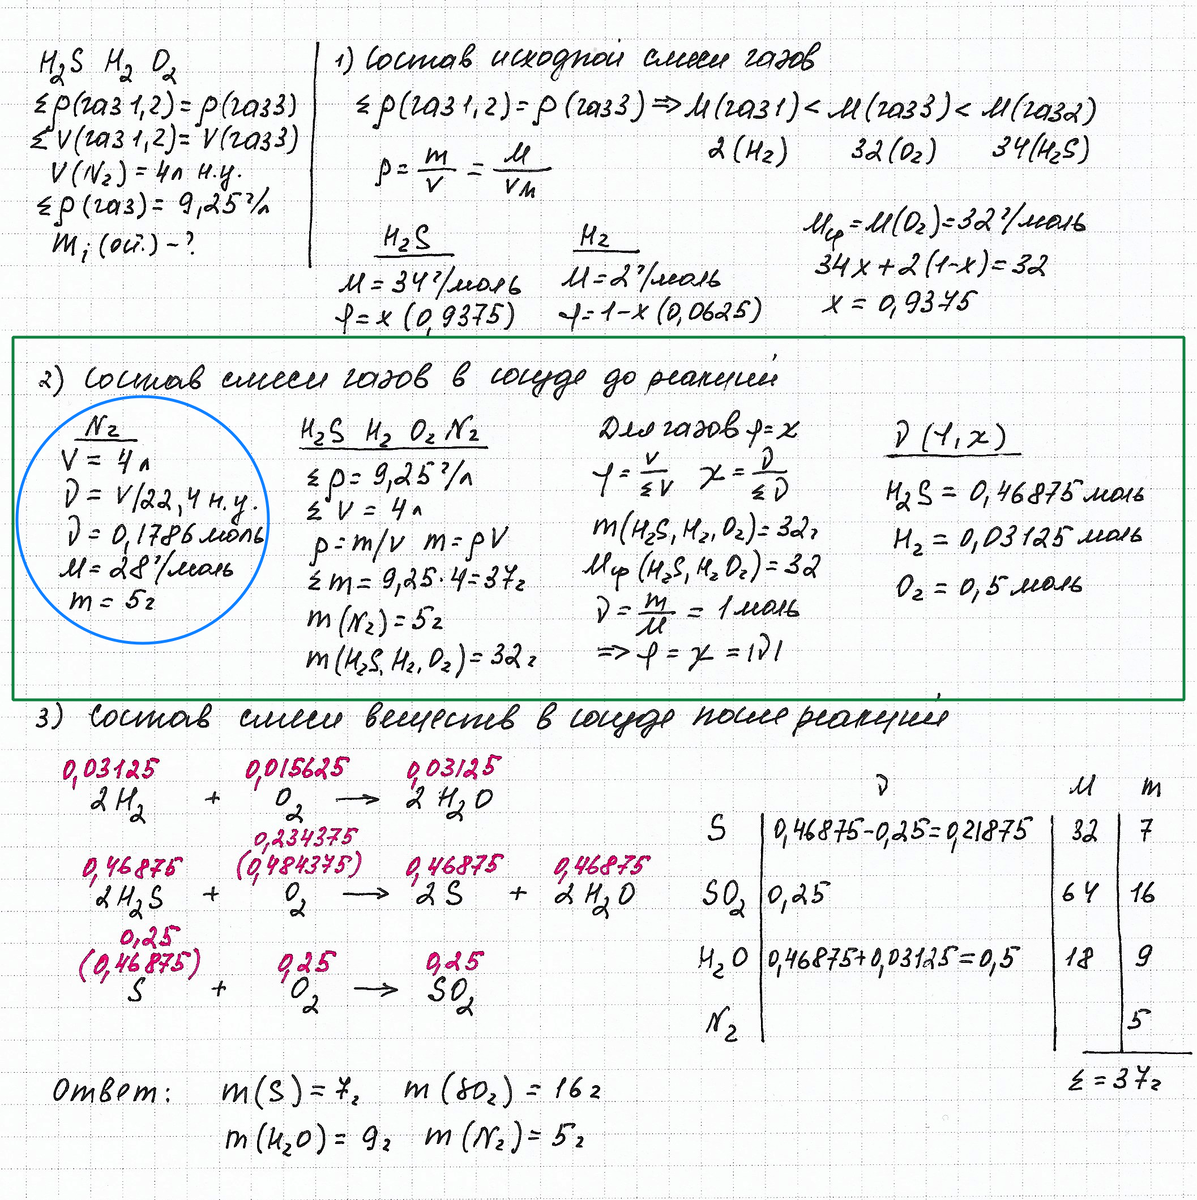 H₂S H₂ O₂
Σρ(газ1,2)=ρ(газ3)
ΣV(газ1,2)=V(газ3)
V(N₂)=4л н.у.
Σρ(газ)=9,25 г/л
mᵢ(ост.)-?
1) Состав исходной смеси газов
Σρ(газ1,2)=ρ(газ3)⇒M(газ1)<M(газ3)<M(газ2)
2(H₂) 32(O₂) 34(H₂S)
ρ=m/V=M/Vм
H₂S
M=34 г/моль
φ=x(0,9375)
H₂
M=2 г/моль
φ=1-x(0,0625)
Mср=M(O₂)=32 г/моль
34x+2(1-x)=32
x=0,9375
2) Состав смеси газов в сосуде до реакций
N₂
V=4л
ν=V/22,4 н.у.
ν=0,1786 моль
M=28 г/моль
m=5г
H₂S H₂ O₂ N₂
Σρ=9,25 г/л
ΣV=4л
ρ=m/V m=ρV
Σm=9,25·4=37г
m(N₂)=5г
m(H₂S,H₂,O₂)=32г
Для газов φ=χ
φ=V/ΣV χ=ν/Σν
m(H₂S,H₂,O₂)=32г
Mср(H₂S,H₂O₂)=32
ν=m/M=1 моль
⇒φ=χ=|ν|
ν(φ,χ)
H₂S=0,46875 моль
H₂=0,03125 моль
O₂=0,5 моль
3) Состав смеси веществ в сосуде после реакций
0,03125 0,015625 0,03125
2H₂ + O₂ → 2H₂O
0,234375
0,46875 (0,484375) 0,46875 0,46875
2H₂S + O₂ → 2S + 2H₂O
0,25
(0,46875) 0,25 0,25
S + O₂ → SO₂
ν M m
S 0,46875-0,25=0,21875 32 7
SO₂ 0,25 64 16
H₂O 0,46875+0,03125=0,5 18 9
N₂ 5
Σ=37г
Ответ: m(S)=7г m(SO₂)=16г
m(H₂O)=9г m(N₂)=5г